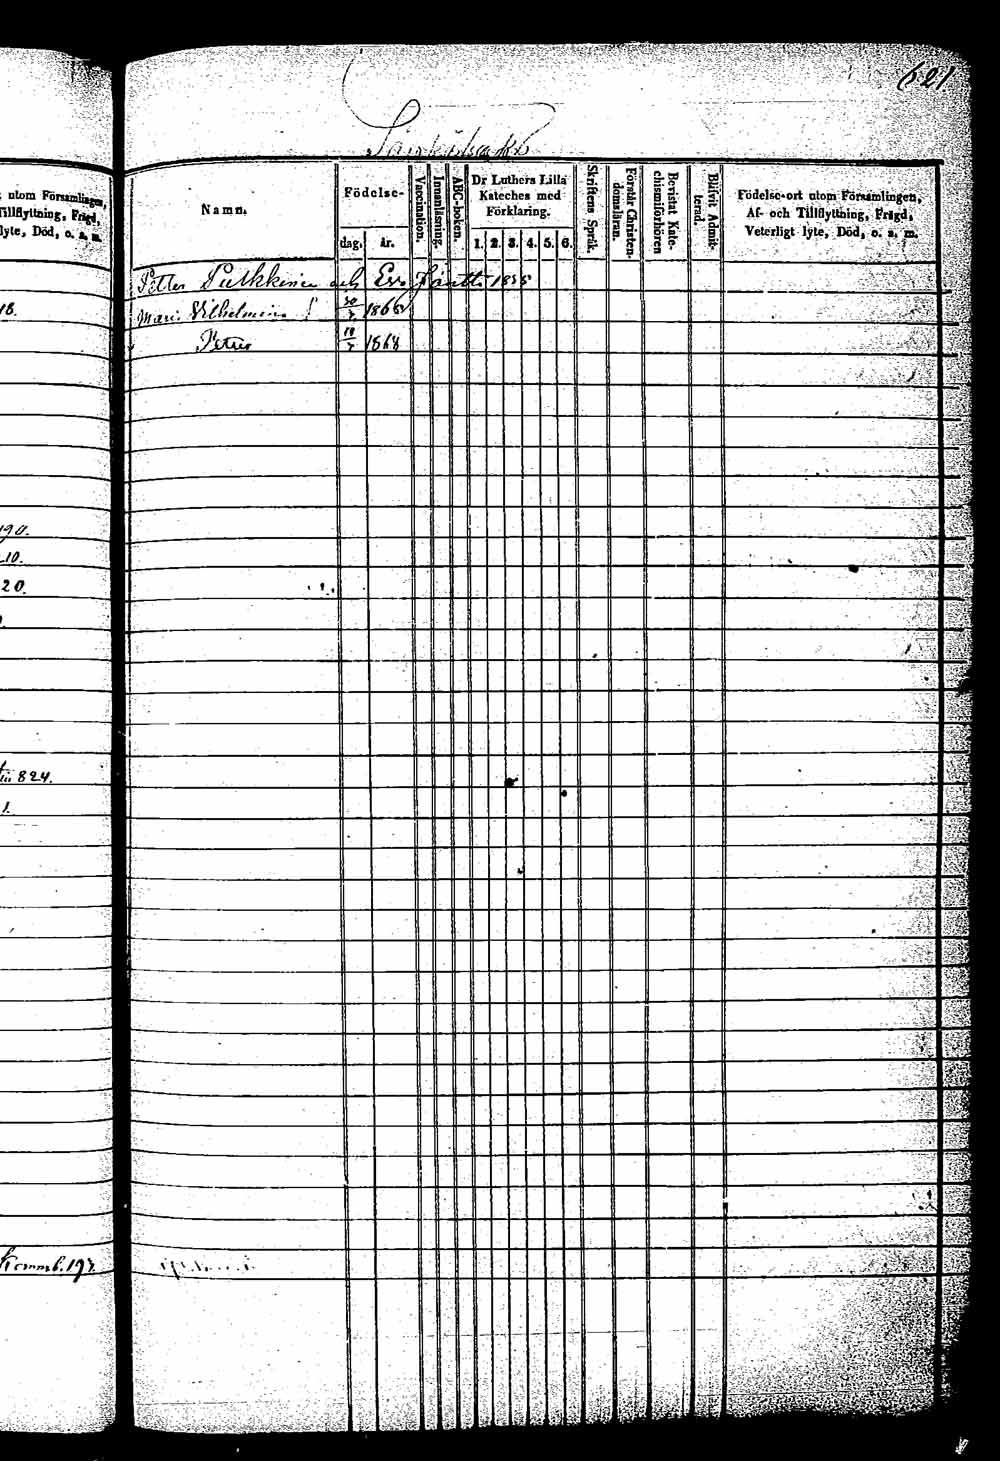 621
utom Församlingen,
Tillflyttning, Frägd,
lyte, Död, o. s. m.
18.
190.
10.
20.
824.
1.
197.
Namn.
Födelse-
dag.
år.
Vaccination.
Innanläsning.
ABC-boken.
Dr Luthers Lilla
Kateches med
Förklaring.
1. 2. 3. 4. 5. 6.
Skriftens Språk.
Förstår Christen-
domsläran.
Bevistat Kate-
chismiförhören
Blifvit Admit-
terad.
Födelse-ort utom Församlingen,
Af- och Tillflyttning, Frägd,
Veterligt lyte, Död, o. s. m.
Petter Pulkkinen och Eva 1835
Maria Vilhelmina 1866
Petter 1868